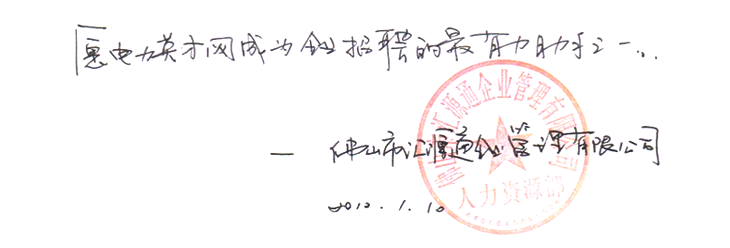 愿电力英才网成为企业招聘的最有力助手之一..
— 佛山市汇源通企业管理有限公司
2010.1.10
佛山市汇源通企业管理有限公司
人力资源部